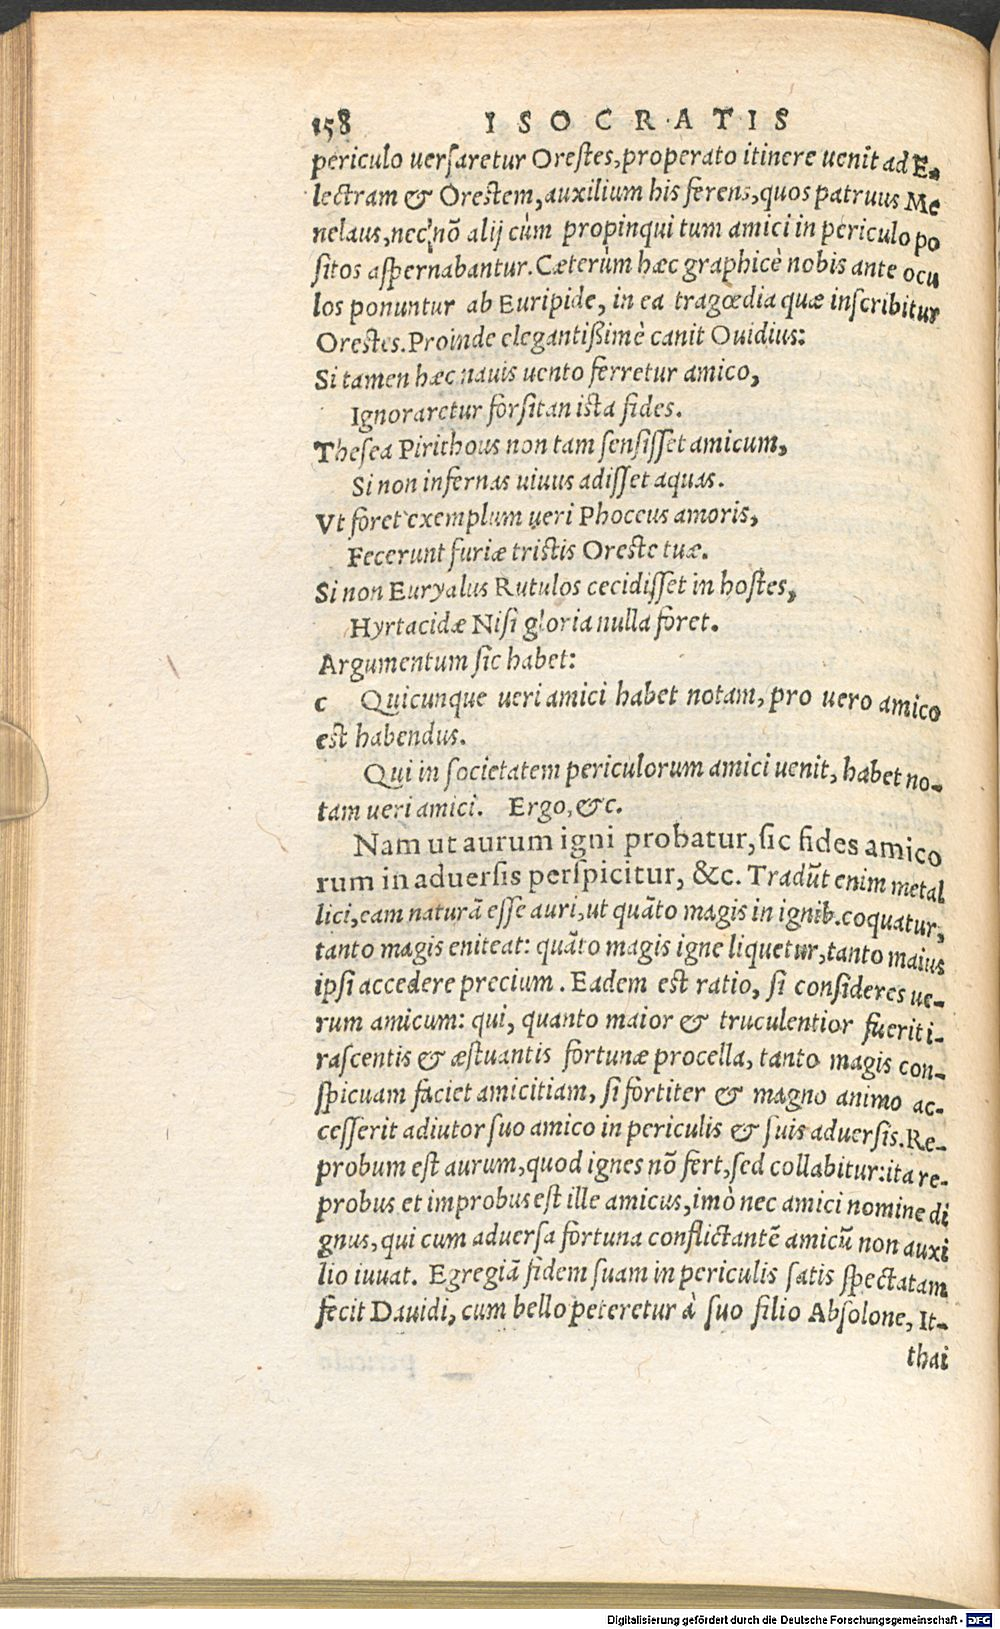 158 ISOCRATIS
periculo uerſaretur Oreſtes, properato itinere uenit ad E-
lectram & Oreſtem, auxilium his ferens, quos patruus Me
nelaus, nec nō alij cùm propinqui tum amici in periculo po
ſitos aſpernabantur. Cæterùm hæc graphicè nobis ante ocu
los ponuntur ab Euripide, in ea tragœdia quæ inſcribitur
Oreſtes. Proinde elegantißimè canit Ouidius:
Si tamen hæc nauis uento ferretur amico,
Ignoraretur forſitan iſta fides.
Theſea Pirithous non tam ſenſiſſet amicum,
Si non infernas uiuus adiſſet aquas.
Vt foret exemplum ueri Phoceus amoris,
Fecerunt furiæ triſtis Oreſte tuæ.
Si non Euryalus Rutulos cecidiſſet in hoſtes,
Hyrtacidæ Niſi gloria nulla foret.
Argumentum ſic habet:
c Quicunque ueri amici habet notam, pro uero amico
eſt habendus.
Qui in ſocietatem periculorum amici uenit, habet no-
tam ueri amici. Ergo, &c.
Nam ut aurum igni probatur, ſic fides amico
rum in aduerſis perſpicitur, &c. Tradūt enim metal
lici, eam naturā eſſe auri, ut quāto magis in ignib. coquatur,
tanto magis eniteat: quāto magis igne liquetur, tanto maius
ipſi accedere precium. Eadem eſt ratio, ſi conſideres ue-
rum amicum: qui, quanto maior & truculentior fuerit i-
raſcentis & æſtuantis fortunæ procella, tanto magis con-
ſpicuam faciet amicitiam, ſi fortiter & magno animo ac-
ceſſerit adiutor ſuo amico in periculis & ſuis aduerſis. Re-
probum eſt aurum, quod ignes nō fert, ſed collabitur: ita re-
probus et improbus eſt ille amicus, imò nec amici nomine di
gnus, qui cum aduerſa fortuna conflictantē amicū non auxi
lio iuuat. Egregiā fidem ſuam in periculis ſatis ſpectatam
fecit Dauidi, cum bello peteretur à ſuo filio Abſolone, It-
thai
Digitalisierung gefördert durch die Deutsche Forschungsgemeinschaft - DFG